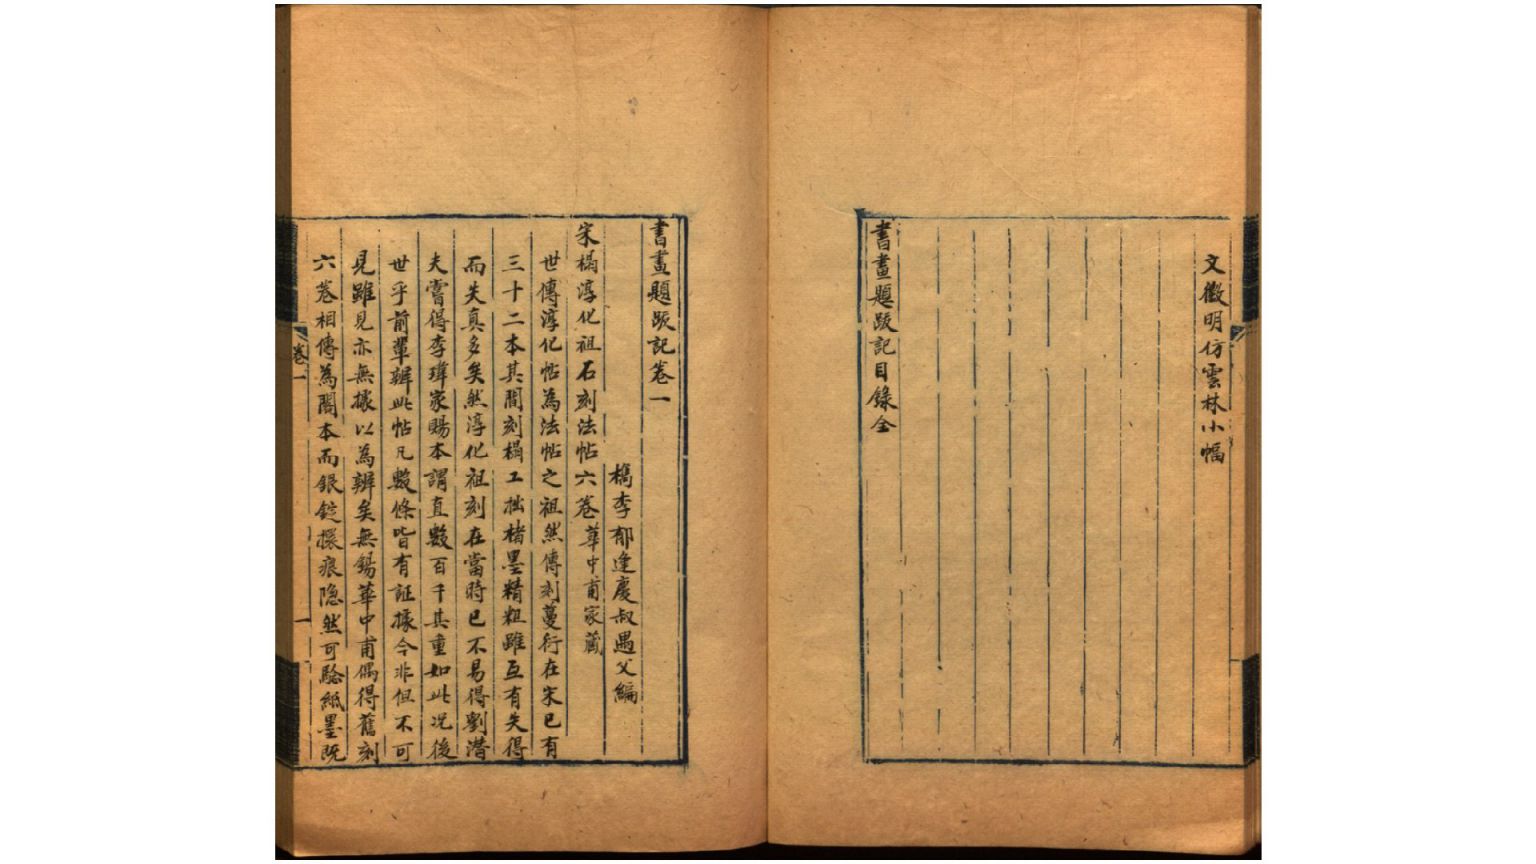 文徵明仿雲林小幅
書畫題跋記目錄全
書畫題跋記卷一
檇李郁逢慶叔遇父編
宋榻淳化祖石刻法帖六卷華中甫家藏
世傳淳化帖為法帖之祖然傳刻蔓衍在宋已有
三十二本其間刻榻工拙楮墨精粗雖互有失得
而失真多矣然淳化祖刻在當時已不易得劉潛
夫嘗得李瑋家賜本謂直數百千其重如此况後
世乎前輩辨此帖凡數條皆有証據今非但不可
見雖見亦無據以為辨矣無錫華中甫偶得舊刻
六卷相傳為閣本而銀錠擐痕隐然可驗紙墨既
卷一
一